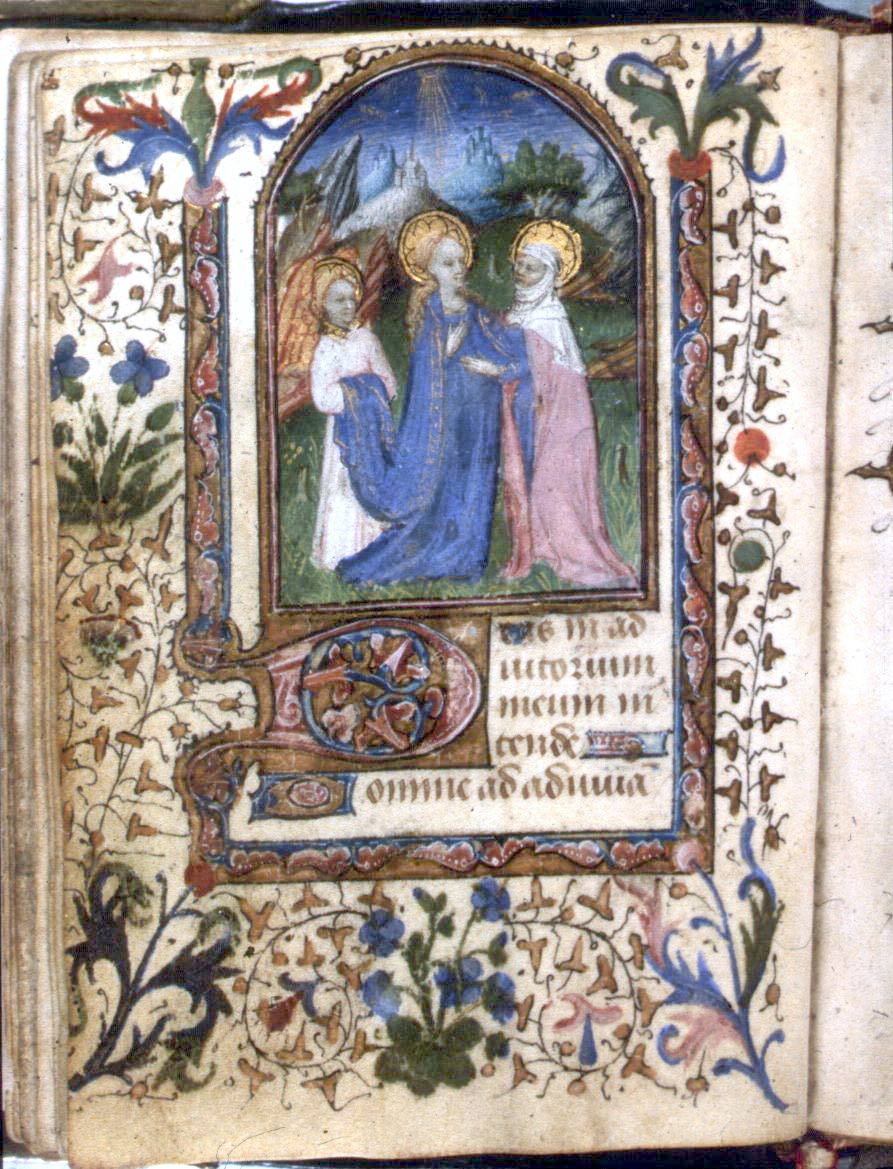 Deus in ad
iutorium
meum in
tende
Domine ad adiuua